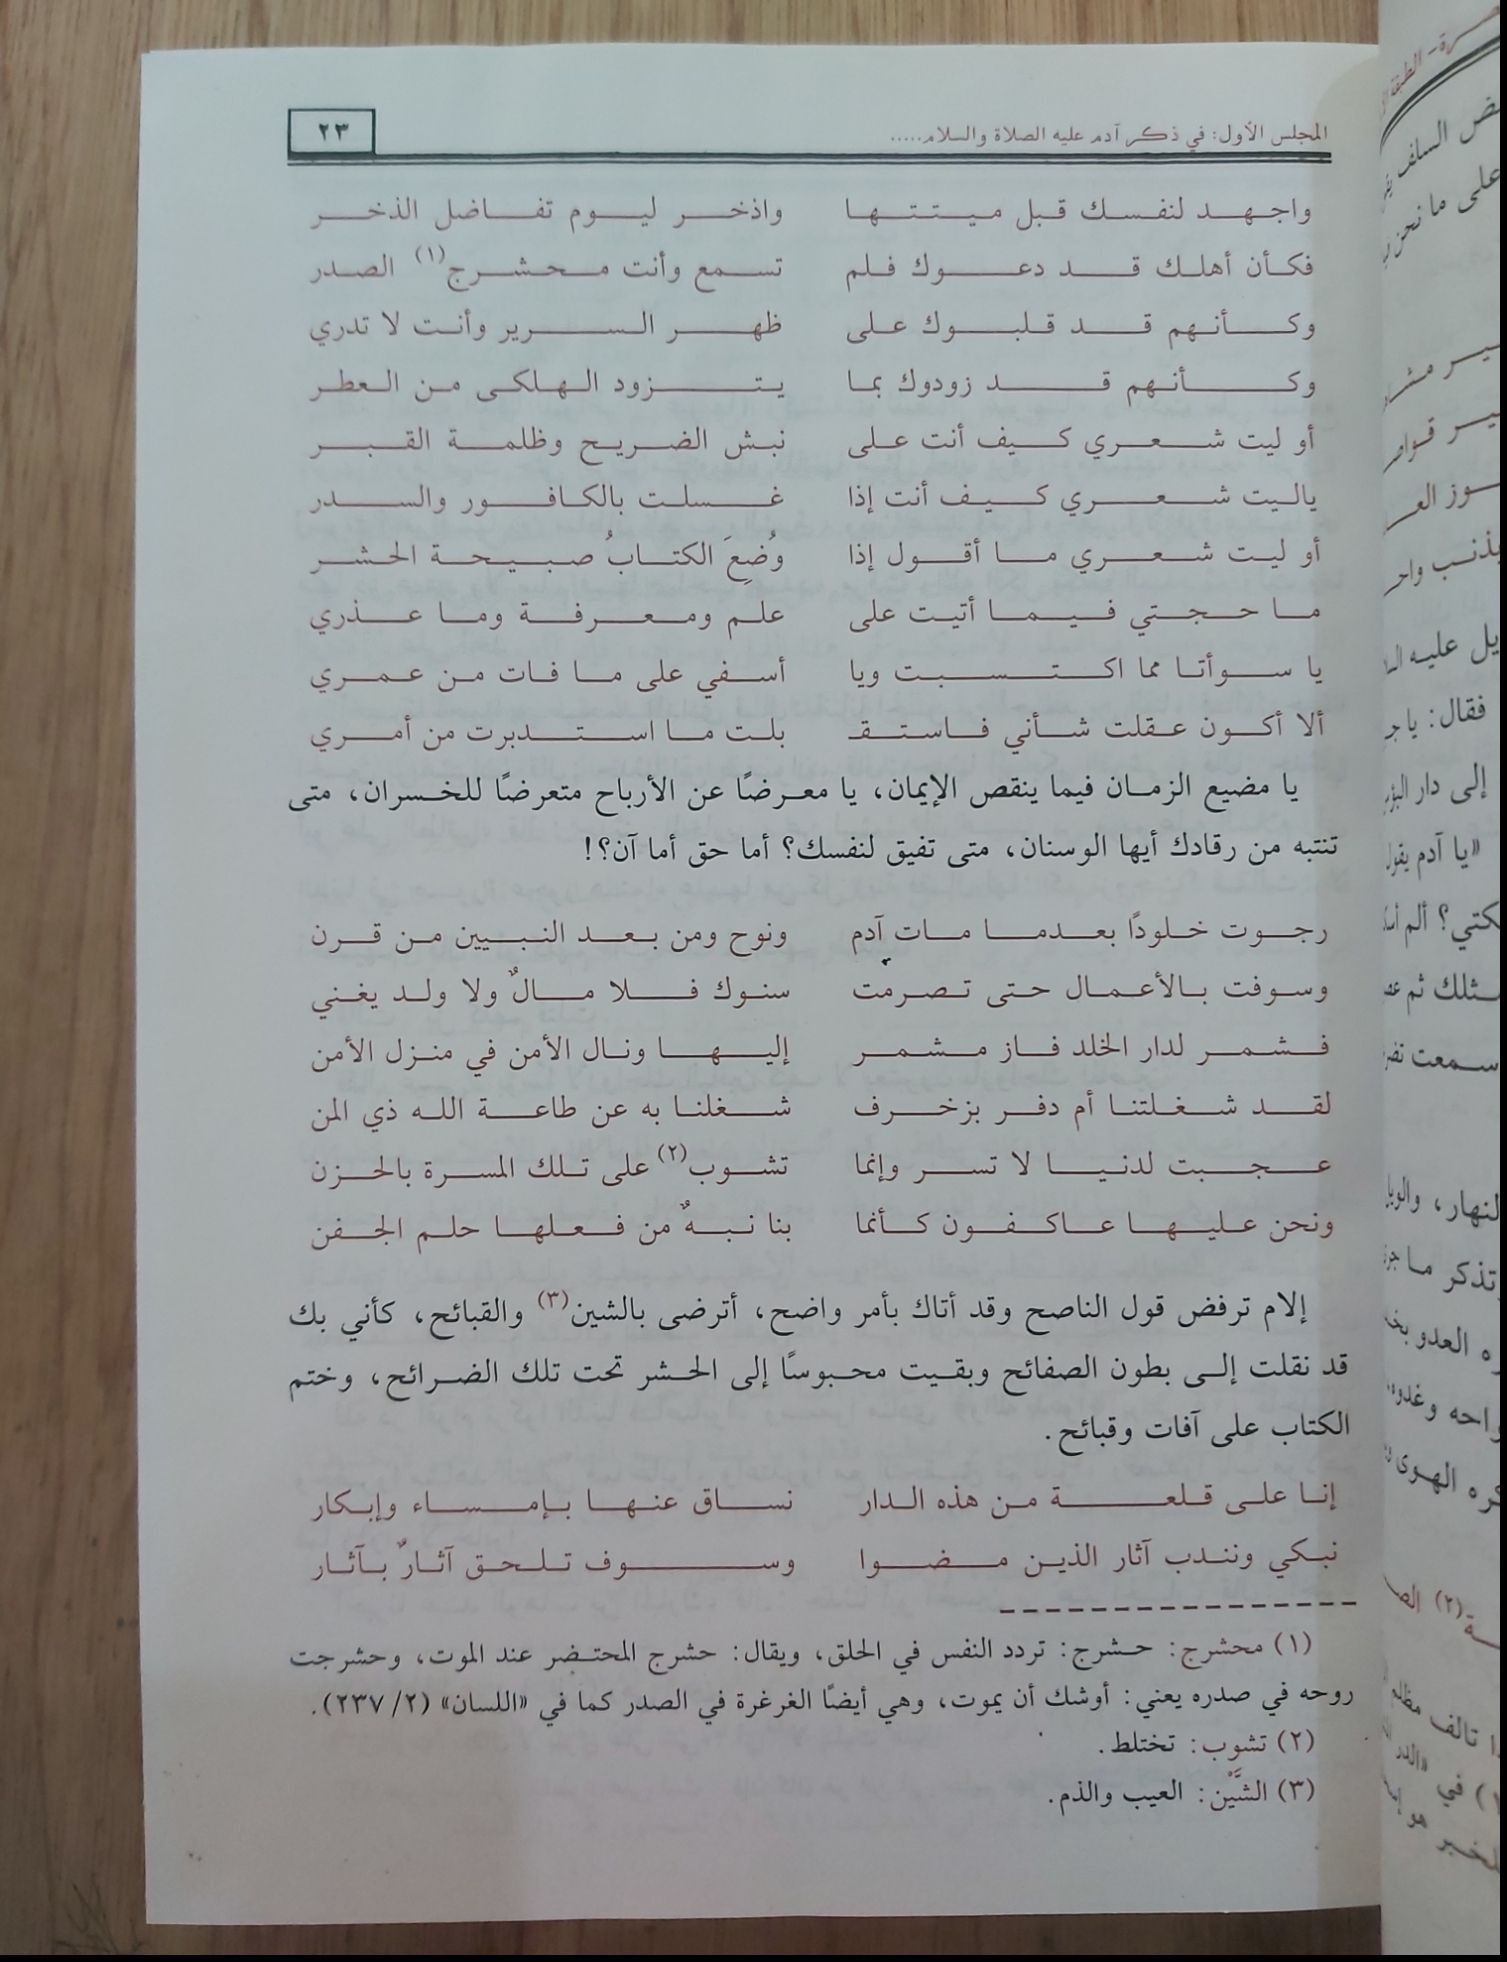 المجلس الأول: في ذكر آدم عليه الصلاة والسلام..... ٢٣
واجهد لنفسك قبل ميتتها واذخر ليوم تفاضل الذخر
فكأن أهلك قد دعوك فلم تسمع وأنت محشرج(١) الصدر
وكأنهم قد قلبوك على ظهر السرير وأنت لا تدري
وكأنهم قد زودوك بما يتزود الهلكى من العطر
أو ليت شعري كيف أنت على نبش الضريح وظلمة القبر
ياليت شعري كيف أنت إذا غسلت بالكافور والسدر
أو ليت شعري ما أقول إذا وُضِعَ الكتابُ صبيحة الحشر
ما حجتي فيما أتيت على علم ومعرفة وما عذري
يا سوأتا مما اكتسبت ويا أسفي على ما فات من عمري
ألا أكون عقلت شأني فاستقـ بلت ما استدبرت من أمري
يا مضيع الزمان فيما ينقص الإيمان، يا معرضًا عن الأرباح متعرضًا للخسران، متى
تنتبه من رقادك أيها الوسنان، متى تفيق لنفسك؟ أما حق أما آن؟!
رجوت خلودًا بعدما مات آدم ونوح ومن بعد النبيين من قرن
وسوفت بالأعمال حتى تصرمت سنوك فلا مالٌ ولا ولد يغني
فشمر لدار الخلد فاز مشمر إليها ونال الأمن في منزل الأمن
لقد شغلتنا أم دفر بزخرف شغلنا به عن طاعة الله ذي المن
عجبت لدنيا لا تسر وإنما تشوب(٢) على تلك المسرة بالحزن
ونحن عليها عاكفون كأنما بنا نبهٌ من فعلها حلم الجفن
إلام ترفض قول الناصح وقد أتاك بأمر واضح، أترضى بالشين(٣) والقبائح، كأني بك
قد نقلت إلى بطون الصفائح وبقيت محبوسًا إلى الحشر تحت تلك الضرائح، وختم
الكتاب على آفات وقبائح.
إنا على قلعة من هذه الدار نساق عنها بإمساء وإبكار
نبكي ونندب آثار الذين مضوا وسوف تلحق آثارٌ بآثار
(١) محشرج: حشرج: تردد النفس في الحلق، ويقال: حشرج المحتضر عند الموت، وحشرجت
روحه في صدره يعني: أوشك أن يموت، وهي أيضًا الغرغرة في الصدر كما في «اللسان» (٢/ ٢٣٧).
(٢) تشوب: تختلط.
(٣) الشَّيْن: العيب والذم.